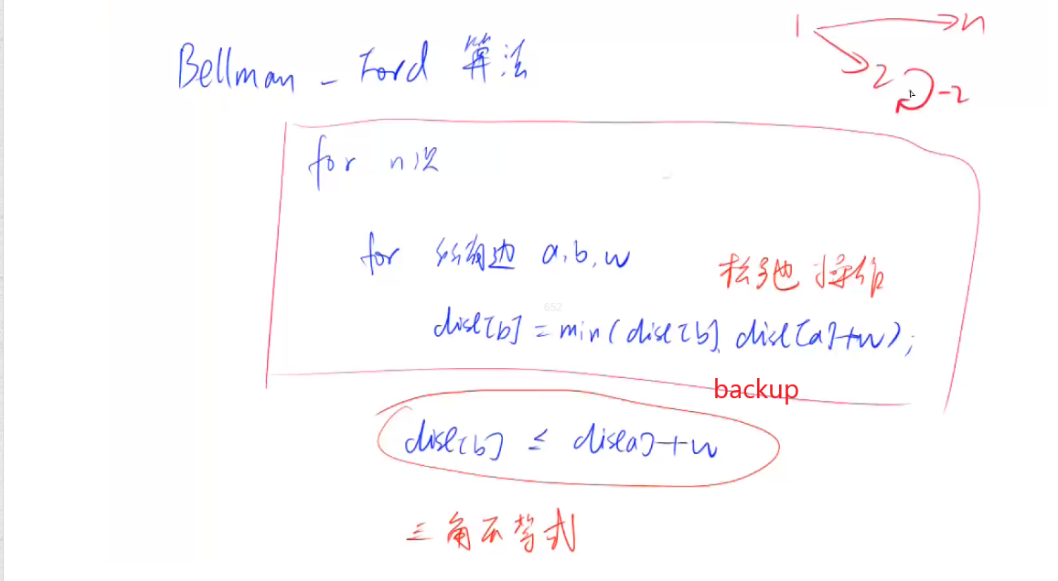 Bellman - Ford 算法
1 n
2 -2
for n次
for 所有边 a,b,w
松弛操作
dist[b] = min(dist[b], dist[a]+w);
backup
dist[b] ≤ dist[a]+w
三角不等式
652